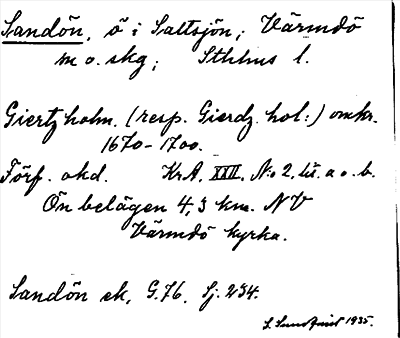 Sandön, ö i Saltsjön; Värmdö
m o. skg; Sthlms l.
Giertz holm. (resp. Gierdz. hol:) omkr.
1670-1700.
Förf. okd. KrA. XXII. N:o 2. lit. a o. b.
Ön belägen 4,3 km. NV
Värmdö kyrka.
Sandön ek. G.76. Sj: 234.
S. Sundquist 1935.